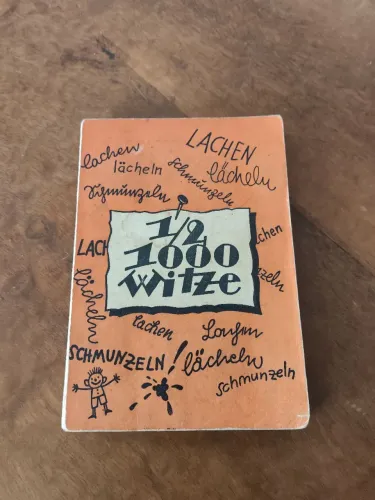 LACHEN
lachen
lächeln
lächeln
schmunzeln
Schmunzeln
1/2
1000
Witze
LACH
chen
nzeln
lächeln
lachen
Lachen
SCHMUNZELN!
lächeln
schmunzeln